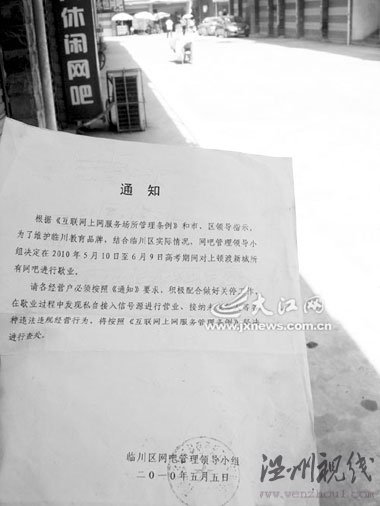 休闲网吧
通知
根据《互联网上网服务场所管理条例》和市、区领导指示,
为了维护临川教育品牌,结合临川区实际情况,网吧管理领导小
组决定在 2010 年 5 月 10 日至 6 月 9 日高考期间对上顿渡新城所
有网吧进行歇业。
请各经营户必须按照《通知》要求,积极配合做好关停工作,
在歇业过程中发现私自接入信号源进行营业、接纳未
种违法违规经营行为,将按照《互联网上网服务管理条例》
进行查处。
大江网
www.jxnews.com.cn
临川区网吧管理领导小组
二〇一〇年五月五日
温州视线
www.wenzhou1.com